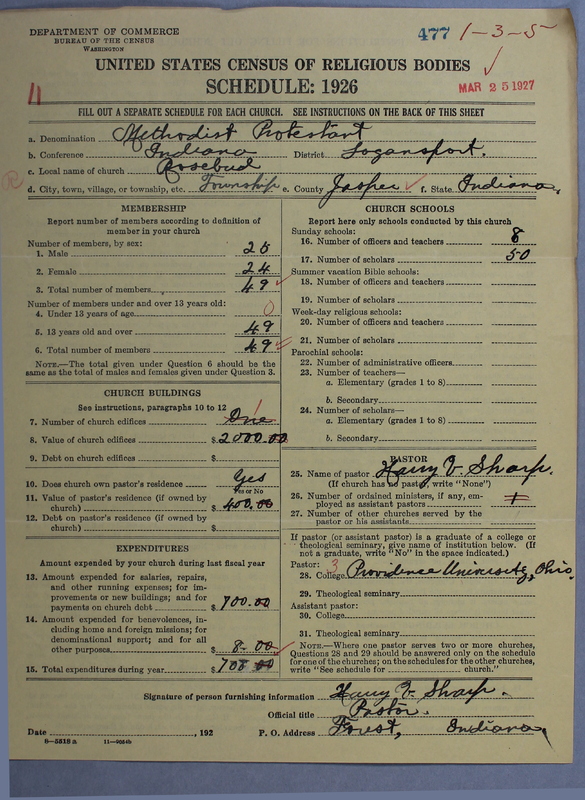 DEPARTMENT OF COMMERCE
BUREAU OF THE CENSUS
WASHINGTON
477 1-3-5
UNITED STATES CENSUS OF RELIGIOUS BODIES
SCHEDULE: 1926
MAR 25 1927
11
FILL OUT A SEPARATE SCHEDULE FOR EACH CHURCH. SEE INSTRUCTIONS ON THE BACK OF THIS SHEET
a. Denomination Methodist Protestant
b. Conference Indiana District Logansport.
c. Local name of church Rosebud
R
d. City, town, village, or township, etc. Township e. County Jasper f. State Indiana.
MEMBERSHIP
Report number of members according to definition of
member in your church
Number of members, by sex:
1. Male 25
2. Female 24
3. Total number of members 49
Number of members under and over 13 years old:
4. Under 13 years of age 0
5. 13 years old and over 49
6. Total number of members 49
NOTE.—The total given under Question 6 should be the
same as the total of males and females given under Question 3.
CHURCH BUILDINGS
See instructions, paragraphs 10 to 12
7. Number of church edifices One 1
8. Value of church edifices $2000.00
9. Debt on church edifices $
10. Does church own pastor's residence Yes
Yes or No
11. Value of pastor's residence (if owned by
church) $400.00
12. Debt on pastor's residence (if owned by
church) $
EXPENDITURES
Amount expended by your church during last fiscal year
13. Amount expended for salaries, repairs,
and other running expenses; for im-
provements or new buildings; and for
payments on church debt $700.00
14. Amount expended for benevolences, in-
cluding home and foreign missions; for
denominational support; and for all
other purposes $8-00
15. Total expenditures during year $708 00
CHURCH SCHOOLS
Report here only schools conducted by this church
Sunday schools:
16. Number of officers and teachers 8
17. Number of scholars 50
Summer vacation Bible schools:
18. Number of officers and teachers
19. Number of scholars
Week-day religious schools:
20. Number of officers and teachers
21. Number of scholars
Parochial schools:
22. Number of administrative officers
23. Number of teachers—
a. Elementary (grades 1 to 8)
b. Secondary
24. Number of scholars—
a. Elementary (grades 1 to 8)
b. Secondary
PASTOR
25. Name of pastor Harry V. Sharp.
(If church has no pastor, write "None")
26. Number of ordained ministers, if any, em-
ployed as assistant pastors 1
27. Number of other churches served by the
pastor or his assistants 3
If pastor (or assistant pastor) is a graduate of a college or
theological seminary, give name of institution below. (If
not a graduate, write "No" in the space indicated.)
Pastor:
28. College Providence University, Ohio.
29. Theological seminary
Assistant pastor:
30. College
31. Theological seminary
NOTE.—Where one pastor serves two or more churches,
Questions 28 and 29 should be answered only on the schedule
for one of the churches; on the schedules for the other churches,
write "See schedule for church."
Signature of person furnishing information Harry V. Sharp.
Official title Pastor.
Date , 192 P. O. Address Forest, Indiana.
8-5518 a 11-9054b